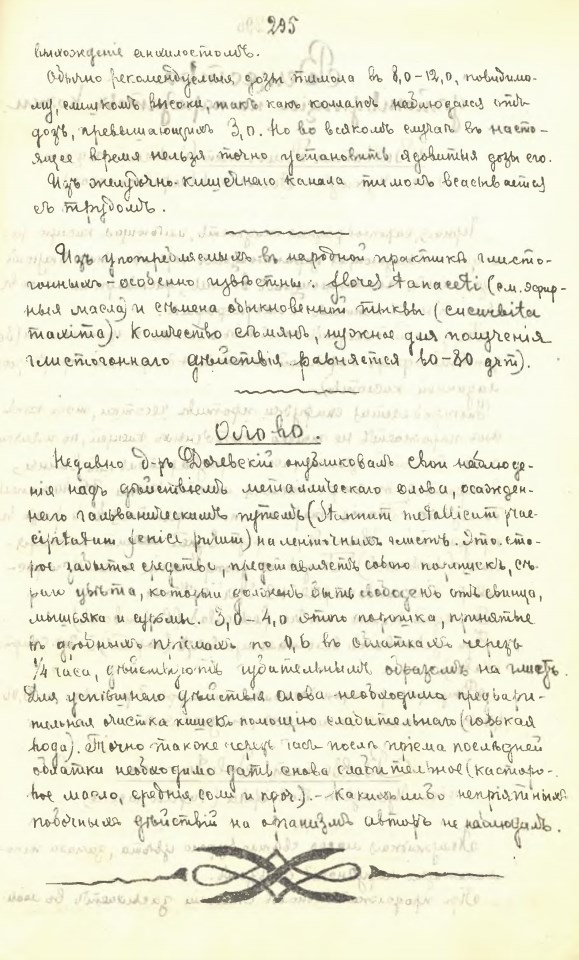 295
выхожденіе анкилостомъ.
Обычно рекомендуемыя дозы тимола въ 8,0–12,0, повидимо-
му, слишкомъ высоки, такъ какъ коллапсъ наблюдался отъ
дозъ, превышающихъ 3,0. Но во всякомъ случаѣ въ насто-
ящее время нельзя точно установить ядовитыя дозы его.
Изъ желудочно-кишечнаго канала тимолъ всасывается
съ трудомъ.
Изъ употребляемыхъ въ народной практикѣ глисто-
гонныхъ – особенно извѣстны: flores tanaceti (см. эѳир-
ныя масла) и сѣмена обыкновенной тыквы (cucurbita
maxima). Количество сѣмянъ, нужное для полученія
глистогоннаго дѣйствія равняется 60–80 дчт).
Олово.
Недавно д-ръ Дочевскій опубликовалъ свои наблюде-
нія надъ дѣйствіемъ металлическаго олова, осажден-
наго гальваническимъ путемъ (Stannum metallicum prae-
cipitatum purum) на ленточныхъ глистъ. Это ста-
рое забытое средство, представляетъ собою порошокъ, сѣ-
раго цвѣта, который долженъ быть свободенъ отъ свинца,
мышьяка и сурьмы. 3,0–4,0 этого порошка, принятые
въ дробныхъ пріемахъ по 0,6 въ облаткахъ черезъ
1/4 часа, дѣйствуютъ губительнымъ образомъ на глистъ.
Для успѣшнаго дѣйствія олова необходима предвари-
тельная очистка кишекъ помощію слабительнаго (горькая
вода). Точно также черезъ часъ послѣ пріема послѣдней
облатки необходимо дать снова слабительное (касторо-
вое масло, среднія соли и проч.). – Какихъ либо непріятныхъ
побочныхъ дѣйствій на организмъ авторъ не наблюдалъ.